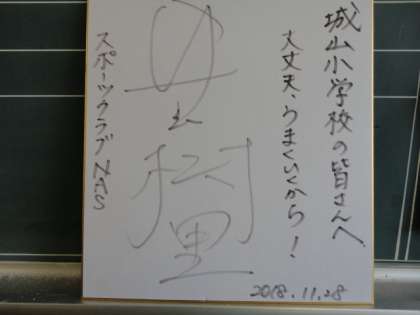 城山小学校の皆さんへ
大丈夫、うまくいくから！
樹里
スポーツクラブNAS
2018.11.28